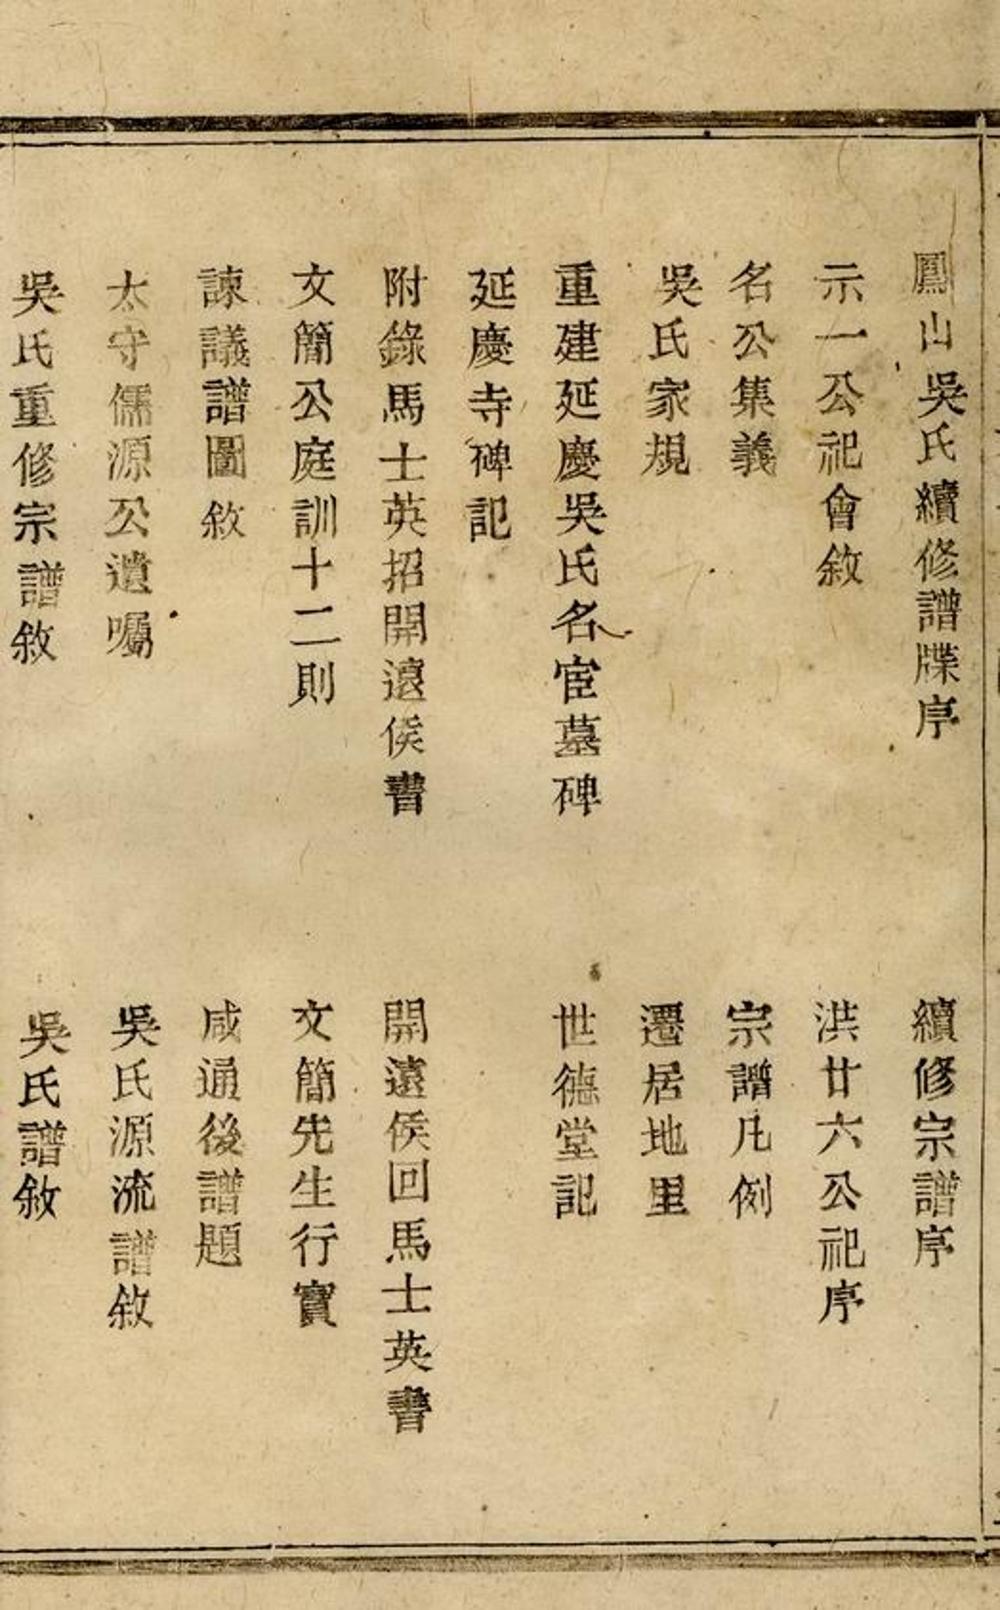 鳳山吳氏續修譜牒序　續修宗譜序
示一公祀會敘　洪廿六公祀序
名公集義　宗譜凡例
吳氏家規　遷居地里
重建延慶吳氏名宦墓碑　世德堂記
延慶寺碑記
附錄馬士英招開遠侯書　開遠侯回馬士英書
文簡公庭訓十二則　文簡先生行實
諫議譜圖敘　咸通後譜題
太守儒源公遺囑　吳氏源流譜敘
吳氏重修宗譜敘　吳氏譜敘